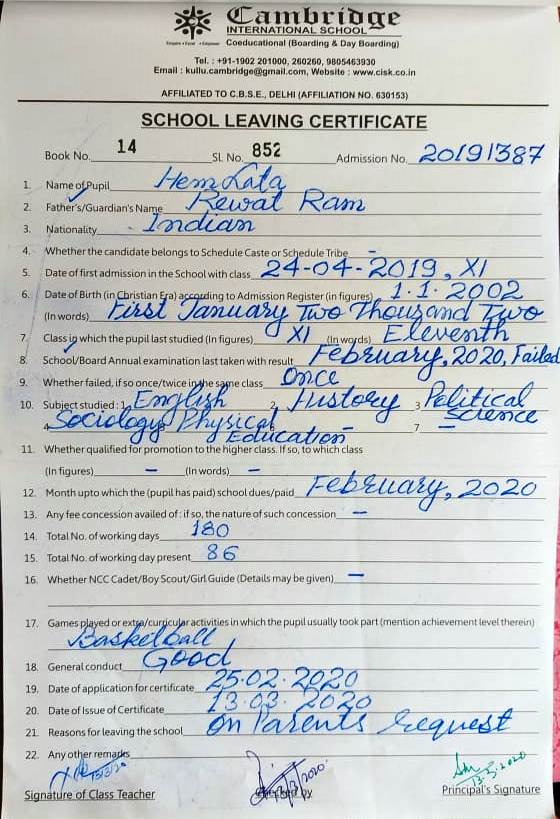 Cambridge
INTERNATIONAL SCHOOL
Coeducational (Boarding & Day Boarding)
Tel. : +91-1902 201000, 260260, 9805463930
Email : kullu.cambridge@gmail.com, Website : www.cisk.co.in
AFFILIATED TO C.B.S.E., DELHI (AFFILIATION NO. 630153)
SCHOOL LEAVING CERTIFICATE
Book No. 14 Sl. No. 852 Admission No. 2019/387
1. Name of Pupil Hem Lata
2. Father's/Guardian's Name Rewat Ram
3. Nationality - Indian
4. Whether the candidate belongs to Schedule Caste or Schedule Tribe -
5. Date of first admission in the School with class 24-04-2019, XI
6. Date of Birth (in Christian Era) according to Admission Register (in figures) 1.1.2002
(In words) First January Two Thousand Two
7. Class in which the pupil last studied (In figures) XI (In words) Eleventh
8. School/Board Annual examination last taken with result February, 2020, Failed
9. Whether failed, if so once/twice in the same class Once
10. Subject studied : 1 English 2 History 3 Political Science
4 Sociology 5 Physical Education 6 - 7 -
11. Whether qualified for promotion to the higher class. If so, to which class
(In figures) - (In words) -
12. Month upto which the (pupil has paid) school dues/paid February, 2020
13. Any fee concession availed of : if so, the nature of such concession -
14. Total No. of working days 180
15. Total No. of working day present 86
16. Whether NCC Cadet/Boy Scout/Girl Guide (Details may be given) -
17. Games played or extra/curricular activities in which the pupil usually took part (mention achievement level therein)
Basketball
18. General conduct Good
19. Date of application for certificate 25.02.2020
20. Date of Issue of Certificate 13.03.2020
21. Reasons for leaving the school On Parents request
22. Any other remarks
13/3/20
13.3.2020
Signature of Class Teacher Checked by Principal's Signature